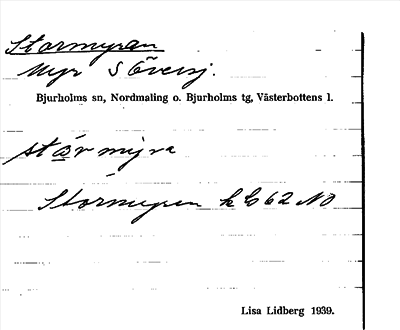 Stormyran
Myr S Översj.
Bjurholms sn, Nordmaling o. Bjurholms tg, Västerbottens l.
stormyra
Stormyran k G 62 NO
Lisa Lidberg 1939.